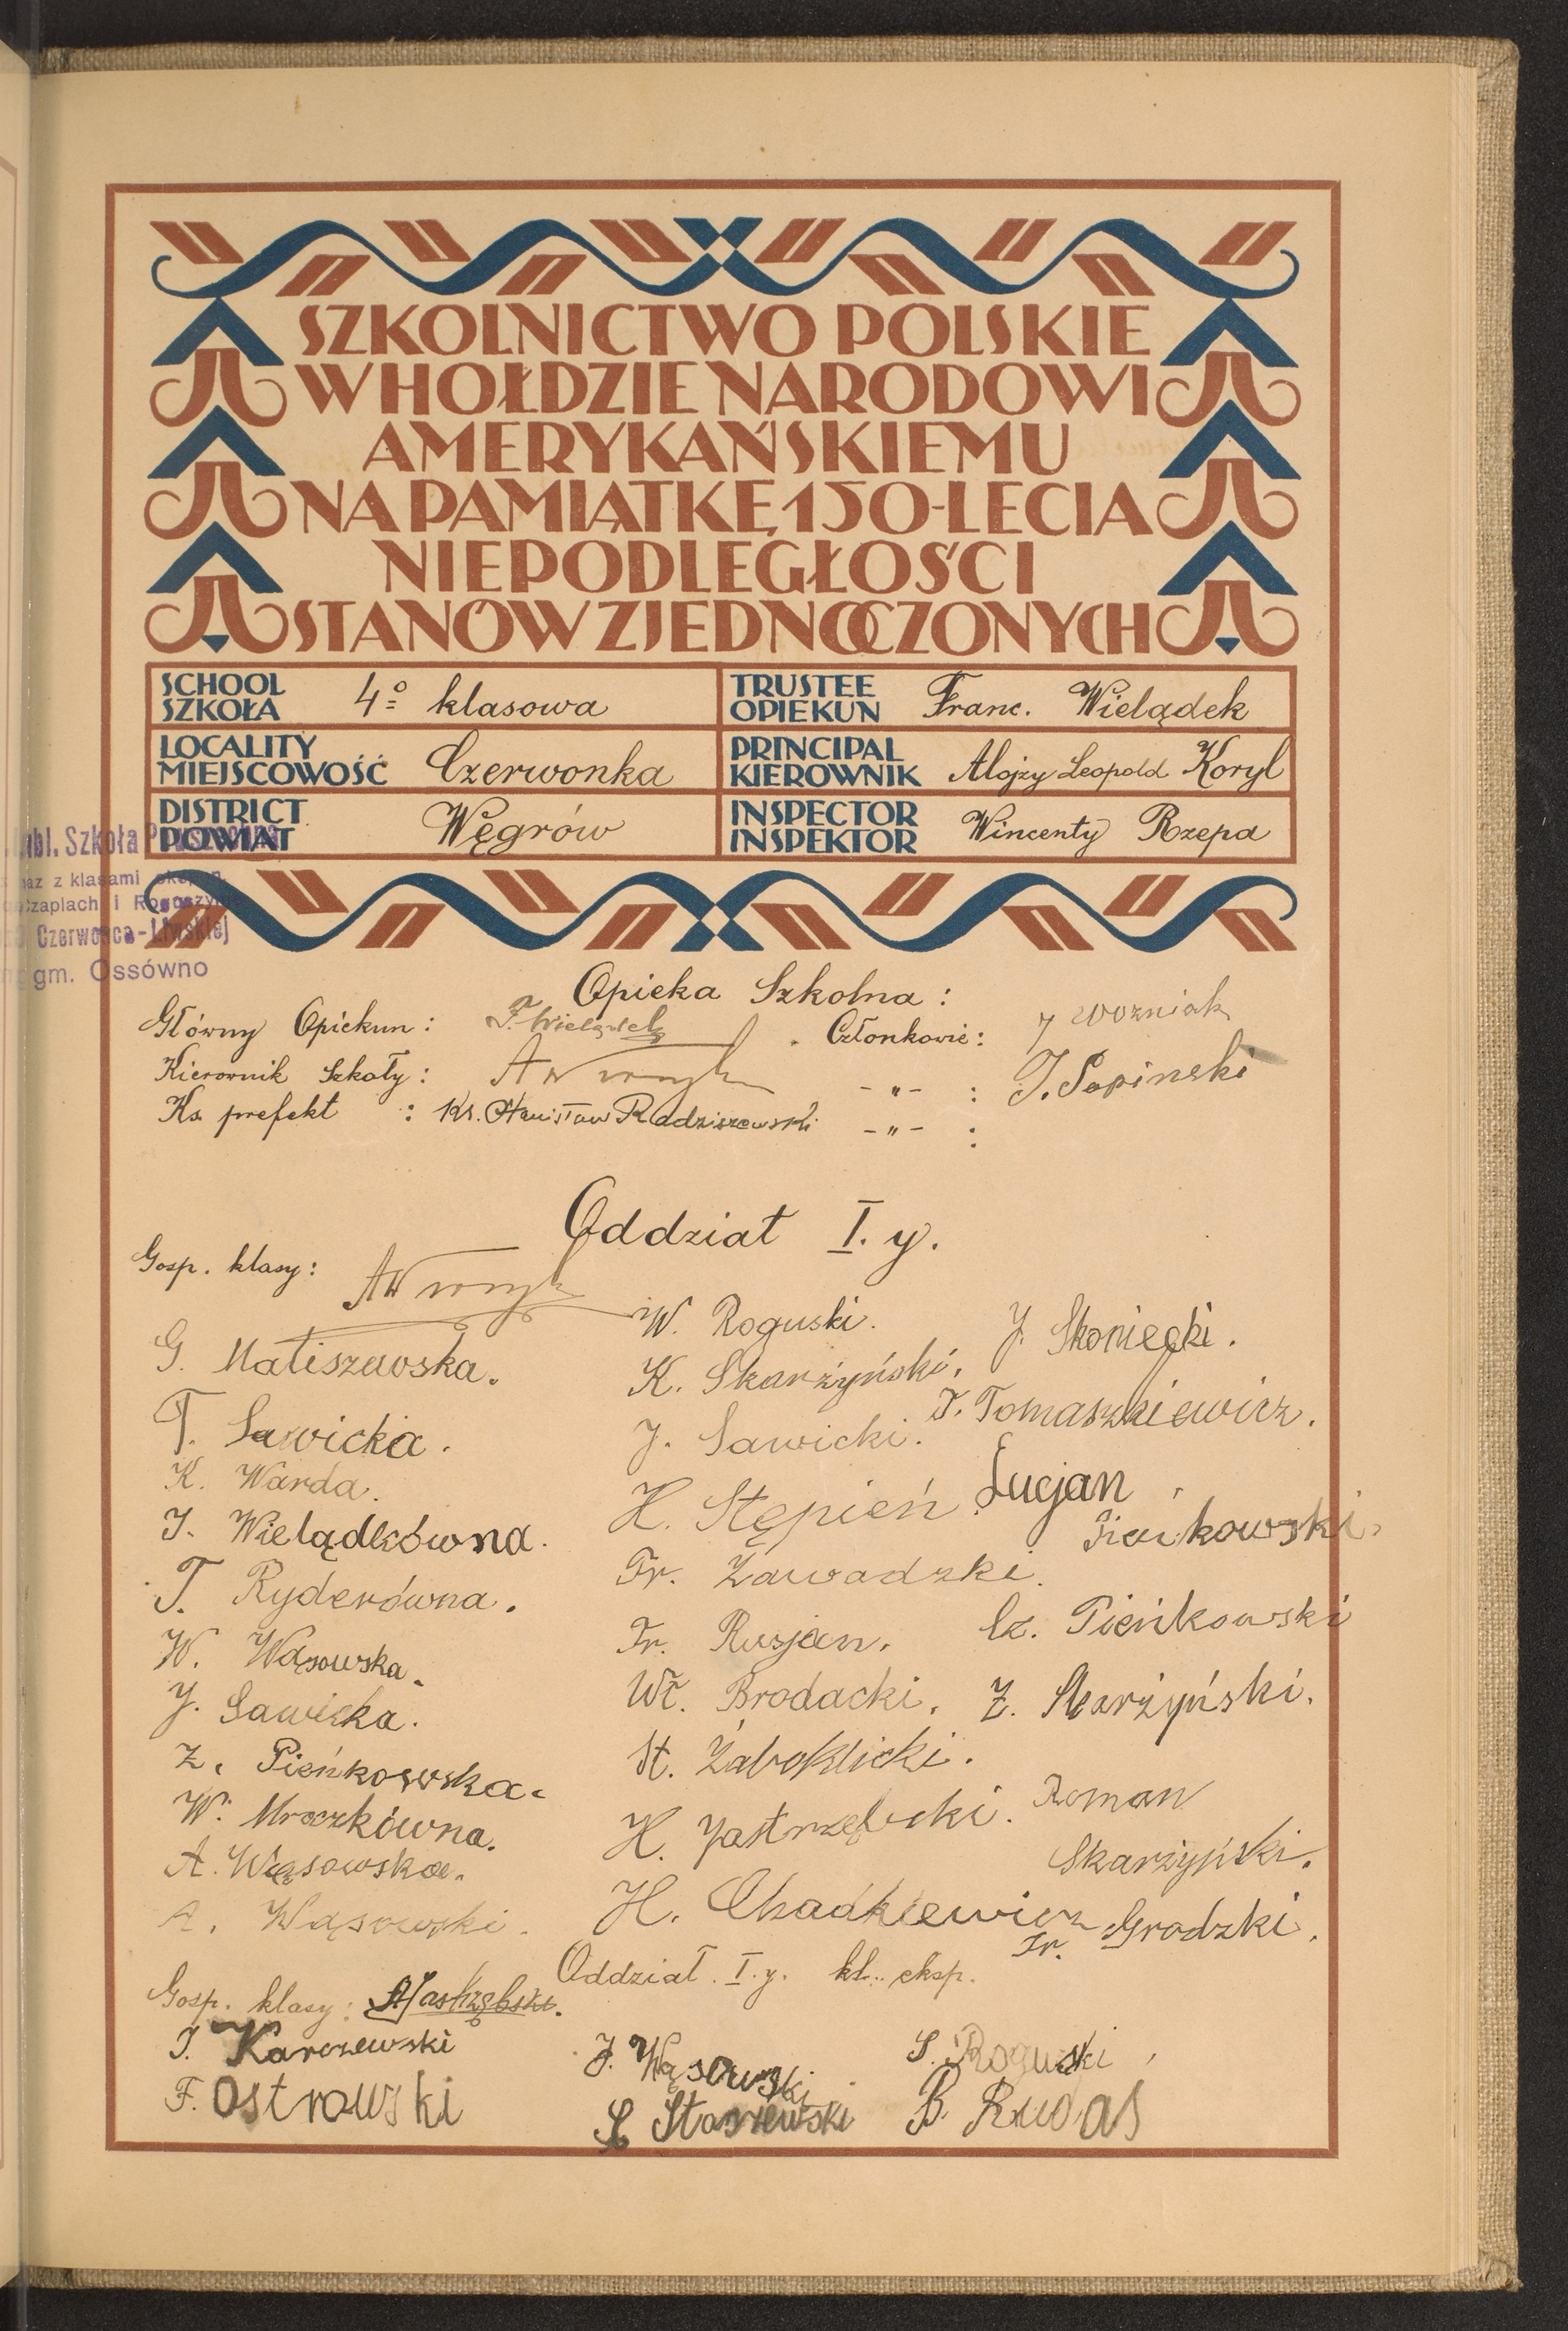 SZKOLNICTWO POLSKIE
W HOŁDZIE NARODOWI
AMERYKAŃSKIEMU
NA PAMIĄTKĘ 150-LECIA
NIEPODLEGŁOŚCI
STANÓW ZJEDNOCZONYCH
SCHOOL
SZKOŁA 4º klasowa
TRUSTEE
OPIEKUN Franc. Wielądek
LOCALITY
MIEJSCOWOŚĆ Czerwonka
PRINCIPAL
KIEROWNIK Alojzy Leopold Koryl
DISTRICT
POWIAT Węgrów
INSPECTOR
INSPEKTOR Wincenty Rzepa
Szkoła
z klasami
i
Czerwonca-Liwskiej
gm. Ossówno
Opieka Szkolna :
Główny Opiekun : F. Wielądek Członkowie : J Woźniak
Kierownik Szkoły : - " - : J. Sopinski
Ks prefekt : Ks. Stanisław Radziszewski - " - :
Oddział I. y.
Gosp. klasy :
G. Matiszewska.
T. Sawicka.
K. Warda.
J. Wielądkówna.
T. Ryderówna.
W. Wąsowska.
J. Sawicka.
Z. Pieńkowska.
W. Mroczkówna.
A. Wąsowska.
A. Wąsowski.
W. Roguski.
K. Skarżyński.
J. Sawicki.
H. Stępień.
Fr. Zawadzki.
Fr. Rusjan.
Wł. Brodacki.
St. Żaboklicki.
H. Jastrzębski.
H. Chadkiewicz
J. Skoniecki.
J. Tomaszkiewicz.
Lucjan
Cz. Pieńkowski
Z. Skarżyński.
Roman
Skarżyński.
Fr. Grodzki.
Oddział. I. y. kl.. eksp.
Gosp. klasy : A Jastrzębski.
J. Karczewski
F. Ostrowski
J. Wąsowski
S Staszewski
S. Roguski
B. Rudaś